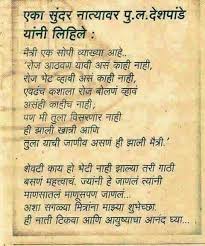 एका सुंदर नात्यावर पु.ल.देशपांडे
यांनी लिहिले :
मैत्री एक सोपी व्याख्या आहे..
'रोज आठवण यावी असं काही नाही,
रोज भेट व्हावी असं काही नाही,
एवढंच कशाला रोज बोलणं व्हावं
असंही काहीच नाही,
पण मी तुला विसरणार नाही
ही झाली खात्री आणि
तुला याची जाणीव असणं ही झाली मैत्री.'
शेवटी काय हो भेटी नाही झाल्या तरी गाठी
बसणं महत्त्वाचं. ज्यांनी हे जाणलं त्यांनी
माणसातलं माणूसपण जाणलं..
अशा सगळ्या मित्रांना माझ्या शुभेच्छा.
ही नाती टिकवा आणि आयुष्याचा आनंद घ्या...